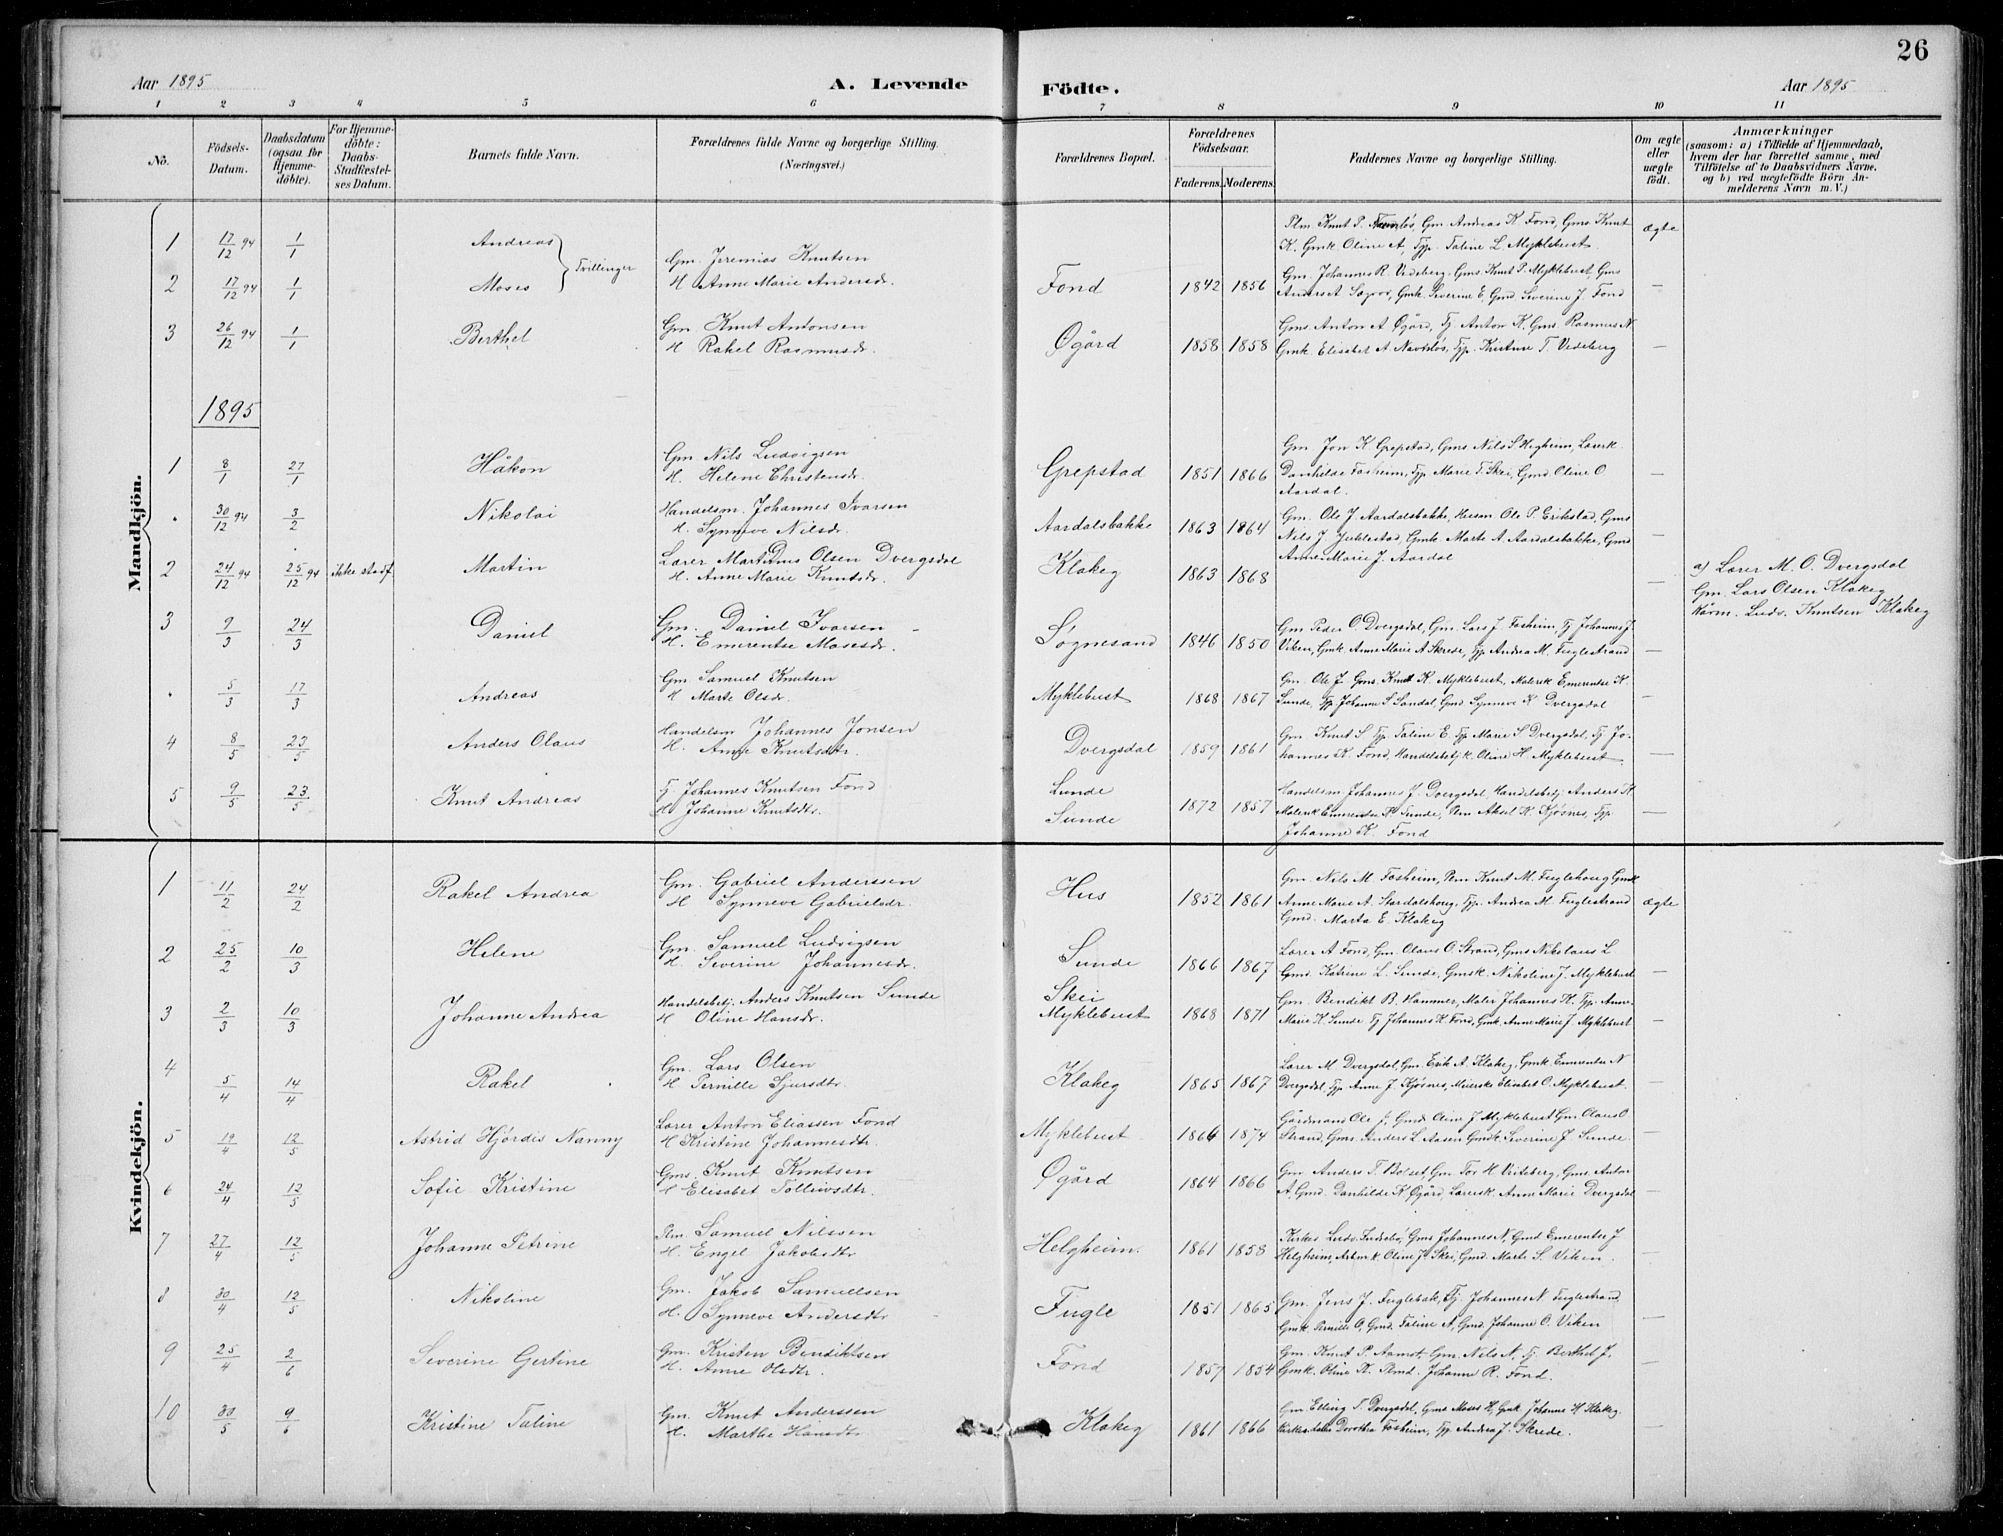 26
Aar 1895 A. Levende Födte. Aar 1895
1 2 3 4 5 6 7 8 9 10 11
No. Födsels-Datum. Daabsdatum (ogsaa for Hjemmedöbte). For Hjemmedöbte: Daabs-Stadfæstelses Datum. Barnets fulde Navn. Forældrenes fulde Navne og borgerlige Stilling. (Næringsvei.) Forældrenes Bopæl. Forældrenes Födselsaar. Faderens. Moderens. Faddernes Navne og borgerlige Stilling. Om ægte eller uægte födt. Anmærkninger (saasom: a) i Tilfælde af Hjemmedaab, hvem der har forrettet samme, med Tilföielse af to Daabsvidners Navne, og b) ved uægtefödte Börn Anmelderens Navn m. V.)
Mandkjön.
1 17/12 94 1/1 Andreas } Tvillinger Gm. Jeremias Knutsen Plm. Knut P. Gm Andreas K Fond, Gms Knut ægte
K. Gmk. Oline A, Tjp. Taline L. Myklebust.
2 17/12 94 1/1 Moses H Anne Marie Andersdr. Fond 1842 1856 Gm. Johannes R. Vedeberg. Gms Knut P. Myklebust, Gms —
Anders A Gmk. Severine E. Gmd Severine J. Fond
3 26/12 94 1/1 Berthel Gm Knut Antonsen Øgård 1858 1858 Gms. Anton A Øgård, Tj. Anton K, Gms. Rasmus N. —
H. Rakel Rasmusdr. Gmk. Elisabet A Tjp. Kristine T. Vedeberg
1895
1 8/1 27/1 Håkon Gm Nils Ludvigsen Grepstad 1851 1866 Gm Jon K Grepstad, Gms Nils S. Helgheim, Lærerk. —
H. Helene Christensdr. Danhilde Fosheim, Tjp Marie T. Skei, Gmd Oline O
Aardal.
. 30/12 94 3/2 Nikolai Handelsm. Johannes Ivarsen Aardalsbakke 1863 1864 Gm. Ole J Aardalsbakke, Husm. Ole P. Erikstad, Gms
H. Synneve Nilsdr. Nils J Gmk. Marte A. Aardalsbakke, Gmd
Anne Marie J. Aardal
2 24/12 94 25/12 94 ikke stadf. Martin Lærer Martinus Olsen Dvergsdal Klakeg 1863 1868 — a) Lærer M. O. Dvergsdal
H. Anne Marie Knutsdr. Gm. Lars Olsen Klakeg
Ludv. Knutsen Klakeg
3 9/3 24/3 Daniel Gm. Daniel Ivarsen Søgnesand 1846 1850 Gm Peder O. Dvergsdal, Gm. Lars J Fosheim, Tj Johannes J.
H. Emerentse Mosesdr. Viken, Gmk. Anne Marie A Skrede, Tjp Andrea M. Fuglestrand —
. 5/3 17/3 Andreas Gm. Samuel Knutsen Myklebust 1868 1867 Gm. Ole J Gms. Knut K. Myklebust, Malersk Emerentse K. —
H Marte Olsdr. Sunde, Tjp. Johanne S Sandal, Gmd Synneve K Dvergsdal
4 8/5 23/5 Anders Olaus Handelsm Johannes Jonsen Dvergsdal 1859 1861 Gm. Knut S. Tjp. Taline E. Tjp Marie S Dvergsdal, Tj Jo-
H. Anne Knutsdtr. hannes K. Fond, Handelsbetj.k. Oline H. Myklebust. —
5 9/5 23/5 Knut Andreas Tj. Johannes Knutsen Fond Lunde 1872 1857 Handelsm Johannes J. Dvergsdal, Handelsbetj. Anders K
H. Johanne Knutsdtr. Sunde Malersk Emerentse K Sunde, Pm Aksel K. Kjøsnes, Tjp. —
Johanne K. Fond
Kvindekjön.
1 11/2 24/2 Rakel Andrea Gm. Gabriel Anderssen Hus 1852 1861 Gm. Nils M. Fosheim, Pm Knut M. Fuglehaug Gmk
H Synneve Gabrielsdr. Anne Marie A. Stardalshaug, Tjp. Andrea M. Fuglestrand ægte
Gmd. Marta E. Klakeg
2 25/2 10/3 Helene Gm. Samuel Ludvigsen Sunde 1866 1867 Lærer A Fond, Gm. Olaus O. Strand, Gms Nikolaus L
H. Severine Johannesdr. Gmd. Katrine L. Sunde, Gmsk. Nikoline J. Myklebust —
3 2/3 10/3 Johanne Andrea Handelsbetj. Anders Knutsen Sunde Skei 1868 1871 Gm. Bendikt B. Hammer, Maler Johannes K. Tjp. Anne-
H Oline Hansdr. Myklebust Marie K. Sunde Tj Johannes K. Fond, Gmk. Anne Marie J. Myklebust —
4 5/4 14/4 Rakel Gm. Lars Olsen Klakeg 1865 1867 Lærer M Dvergsdal, Gm. Erik A. Klakeg, Gmk Emerentse N
H Pernille Sjursdtr. Dvergsdal, Tjp. Anne J. Kjøsnes, Meierske Elisabet O. Myklebust. —
5 19/4 12/5 Astrid Hjørdis Nanny Lærer Anton Eliassen Fond Myklebust 1866 1874 Gårdmans Ole J, Gmd Oline J Myklebust Gm Olaus O
H Kristine Johannesdtr. Strand, Gms. Anders L Aasen Gmdk Severine J. Sunde. —
6 24/4 12/5 Sofie Kristine Gms Knut Knutsen Øgård 1864 1866 Gm Anders T. Bolset, Gm Tor H. Gms Anton
H Elisabet Tollivsdtr. A, Gmd. Danhilde K Øgård, Lærersk. Anne Marie Dvergsdal —
7 27/4 12/5 Johanne Petrine Plm. Samuel Nilssen Helgheim. 1861 1858 Kirkes. Ludv. Gms Johannes N, Gmd Emerentse J
H. Engel Jakobsdtr Helgheim, Oline J. Skei, Gmd. Marte S. Viken. —
8 30/4 12/5 Nikoline Gm. Jakob Samuelsen Fugle 1851 1865 Gm. Jens J. Fuglebak, Tj. Johannes N Fuglestrand,
H. Synneve Andersdtr Gmk. Pernille O, Gmd. Taline A, Gmd Johanne O. Viken —
9 25/4 2/6 Severine Gertine Gm. Kristen Bendiktsen Fond 1857 1854 Gm. Knut P. Aamot, Gm. Nils N, Tj. Berthel J. —
H. Anne Olsdtr. Gmk. Oline K. Plmd. Johanne R. Fond.
10 30/5 9/6 Kristine Taline Gm. Knut Anderssen Klakeg 1861 1866 Gm. Elling T. Dvergsdal, Gms Moses H, Gmk. Johanne H. Klakeg,
H. Marthe Hansdtr Dorothea Fosheim, Tjp. Andrea J. Skrede. —